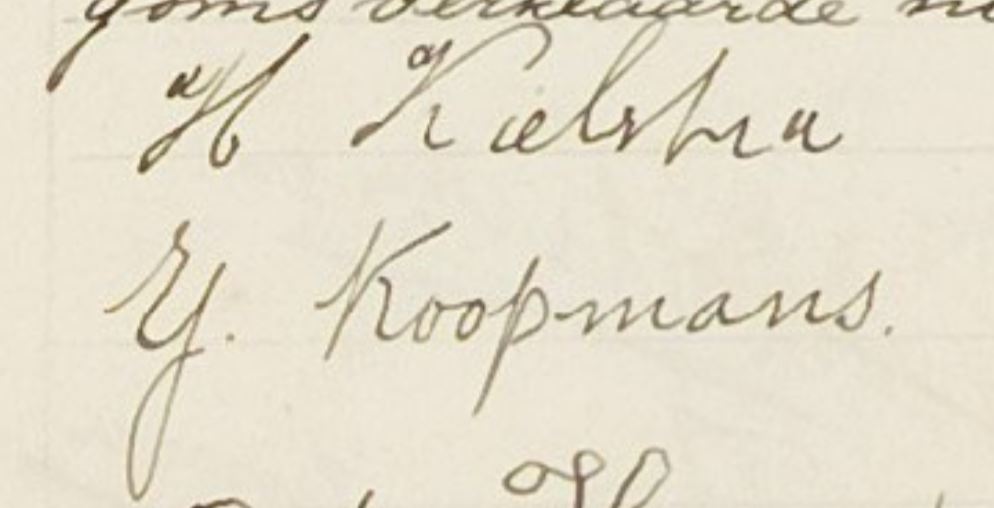 goms verklaarde
H Kælstra
Y. Koopmans.